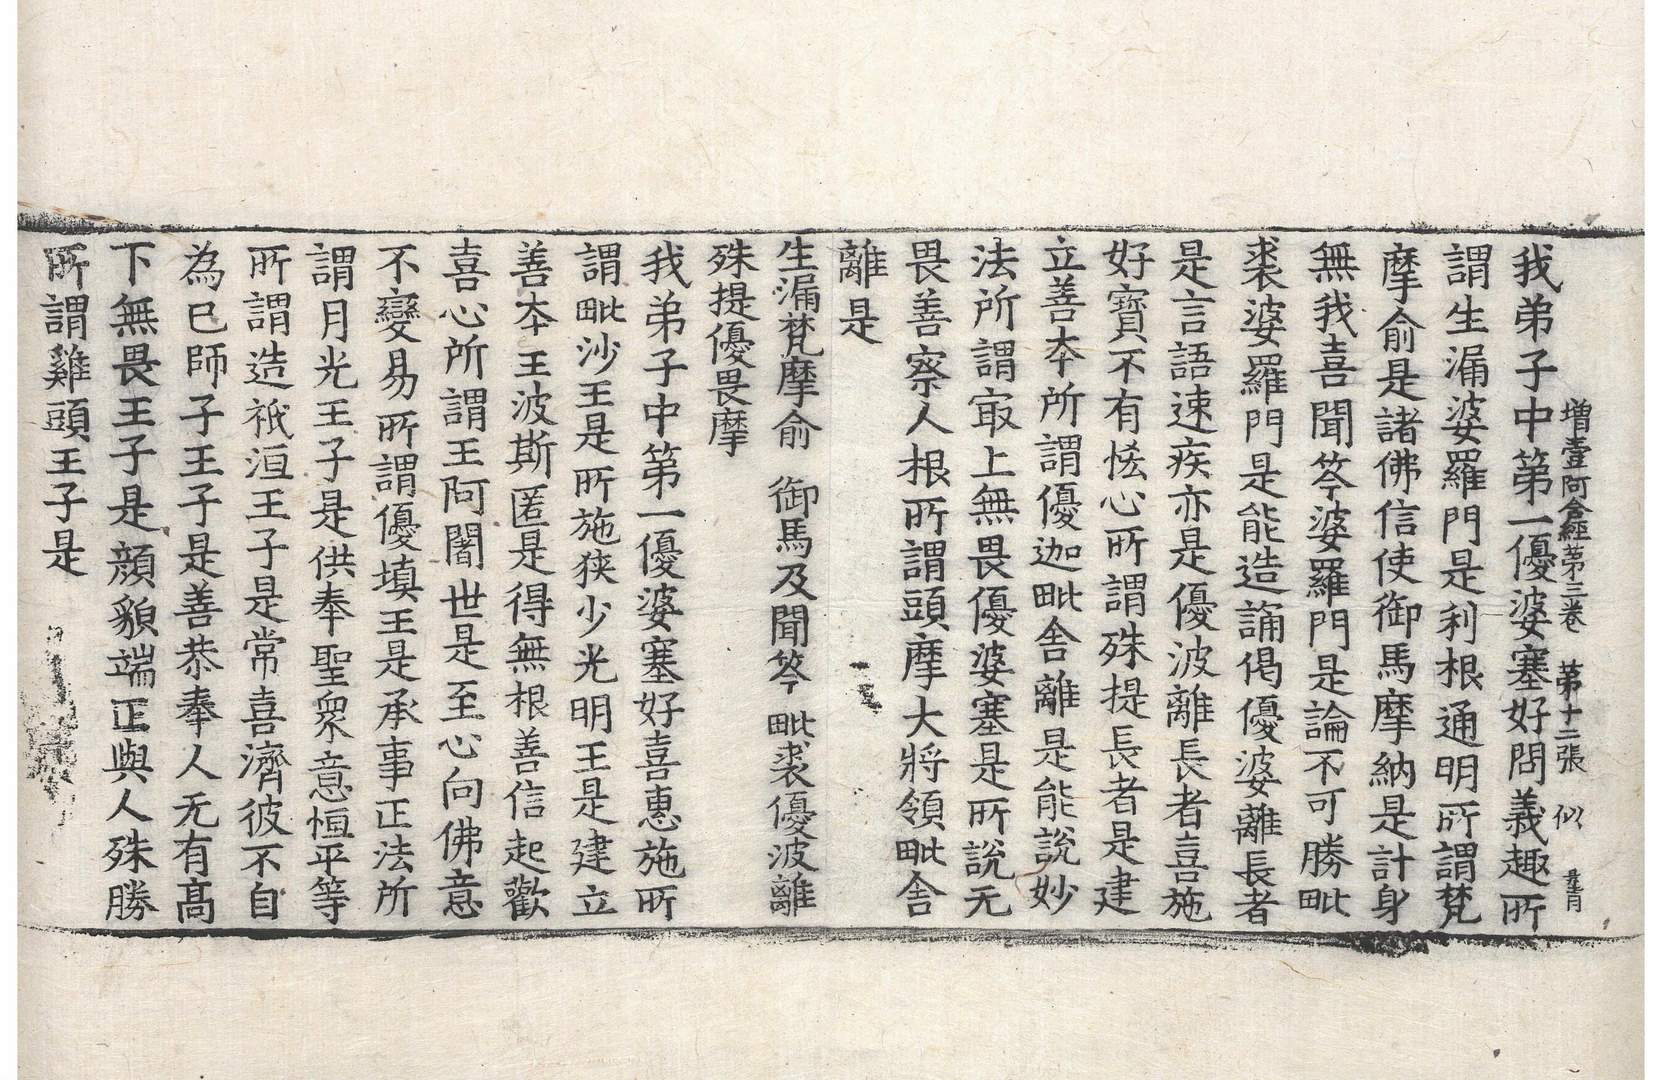 增壹阿含經第三卷 第十二張 似
我弟子中第一優婆塞好問義趣所
謂生漏婆羅門是利根通明所謂梵
摩俞是諸佛信使御馬摩納是計身
無我喜聞笒婆羅門是論不可勝毗
裘婆羅門是能造誦偈優婆離長者
是言語速疾亦是優波離長者喜施
好寶不有悋心所謂殊提長者是建
立善夲所謂優迦毗舍離是能說妙
法所謂㝡上無畏優婆塞是所說无
畏善察人根所謂頭摩大將領毗舍
離是
生漏梵摩俞 御馬及聞笒 毗裘優波離
殊提優畏摩
我弟子中第一優婆塞好喜惠施所
謂毗沙王是所施狹少光明王是建立
善夲王波斯匿是得無根善信起歡
喜心所謂王阿闍世是至心向佛意
不變易所謂優填王是承事正法所
謂月光王子是供奉聖衆意恒平等
所謂造祇洹王子是常喜濟彼不自
為已師子王子是善恭奉人无有高
下無畏王子是顔貌端正與人殊勝
所謂雞頭王子是